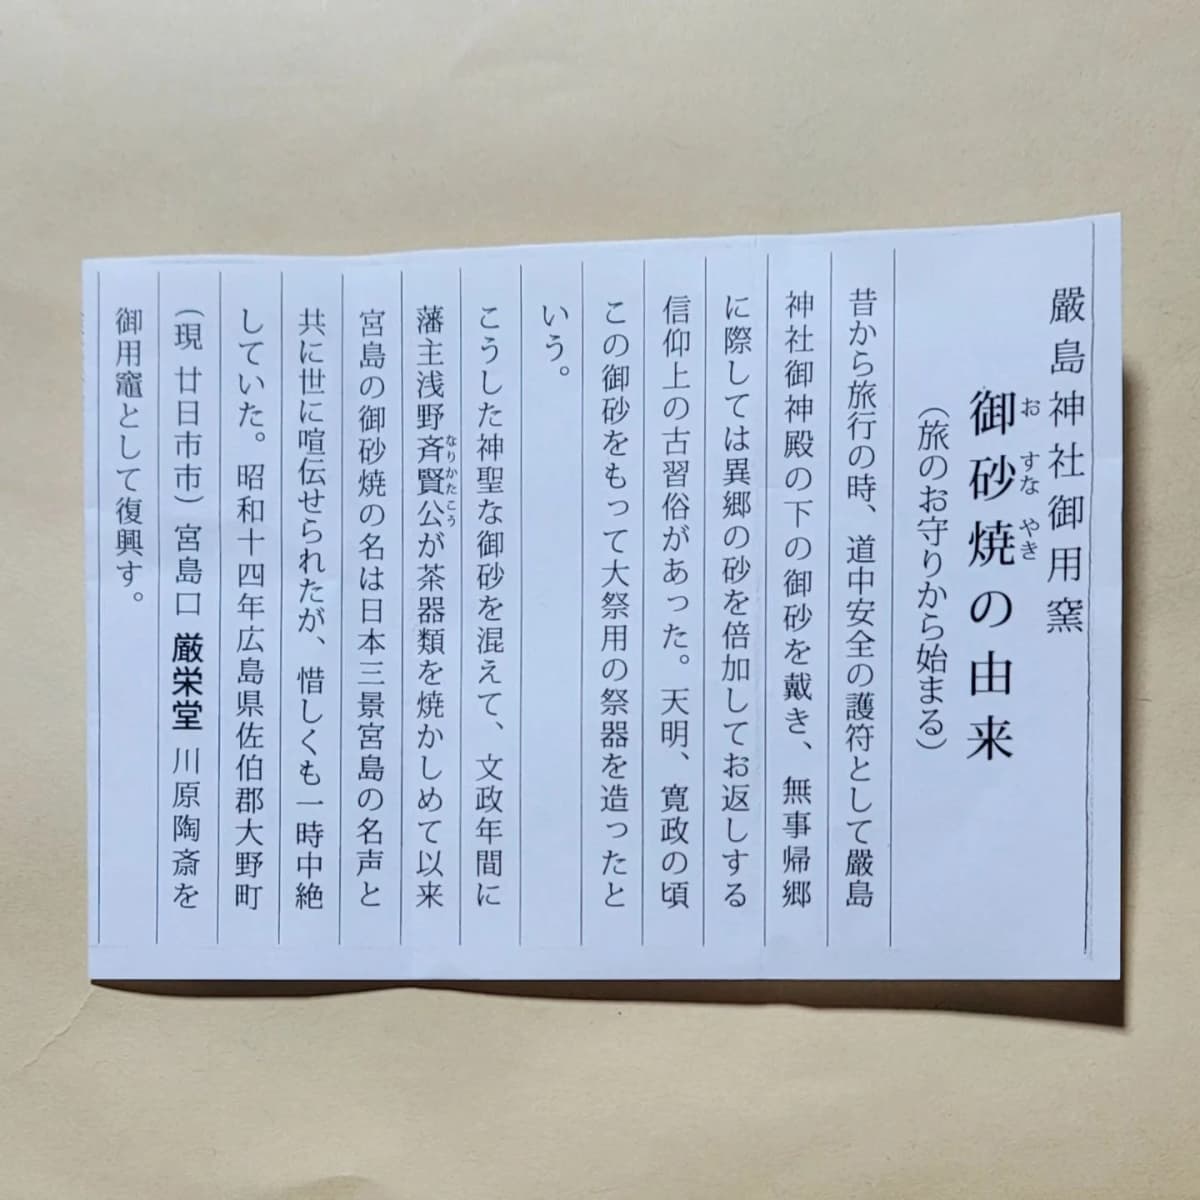 嚴島神社御用窯
御砂焼の由来
おすなやき
（旅のお守りから始まる）
昔から旅行の時、道中安全の護符として嚴島
神社御神殿の下の御砂を戴き、無事帰郷
に際しては異郷の砂を倍加してお返しする
信仰上の古習俗があった。天明、寛政の頃
この御砂をもって大祭用の祭器を造ったと
いう。
こうした神聖な御砂を混えて、文政年間に
藩主浅野斉賢公が茶器類を焼かしめて以来
なりかたこう
宮島の御砂焼の名は日本三景宮島の名声と
共に世に喧伝せられたが、惜しくも一時中絶
していた。昭和十四年広島県佐伯郡大野町
（現 廿日市市）宮島口 厳栄堂 川原陶斎を
御用竈として復興す。